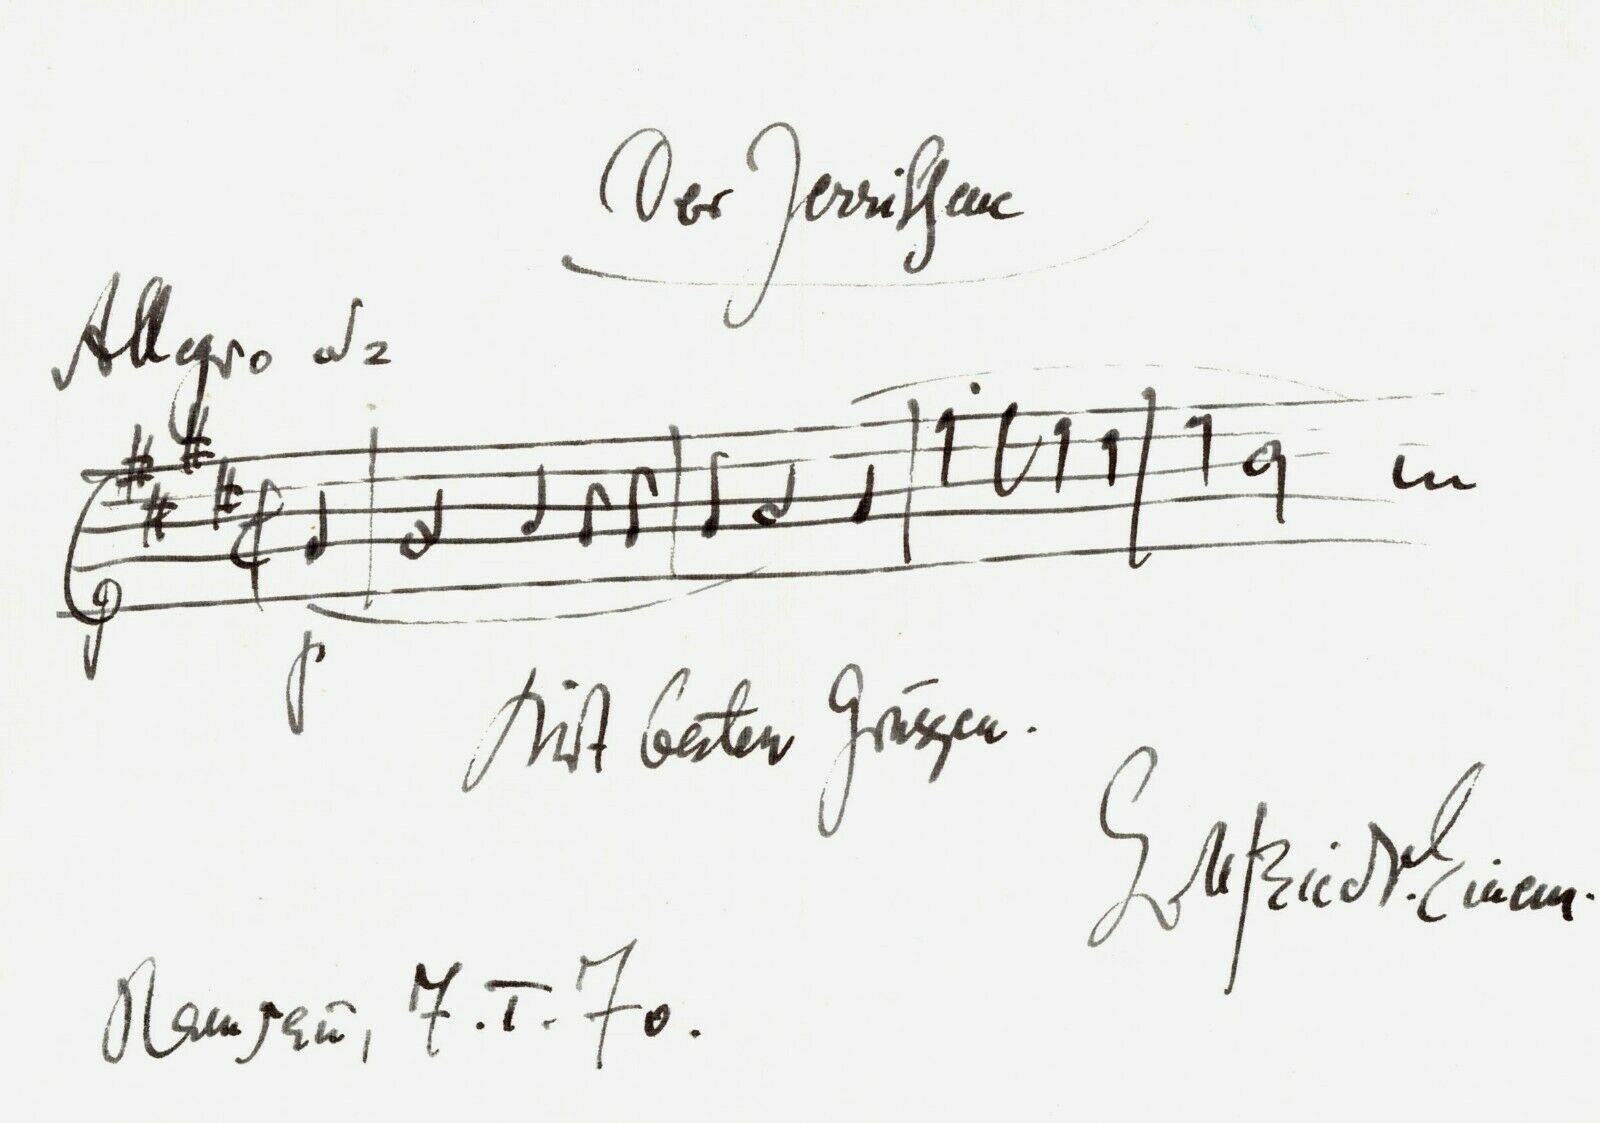 Der Zerrissene
Allegro
p
Mit besten Grüssen.
Gottfried v. Einem.
Ramsau, 7.I.70.